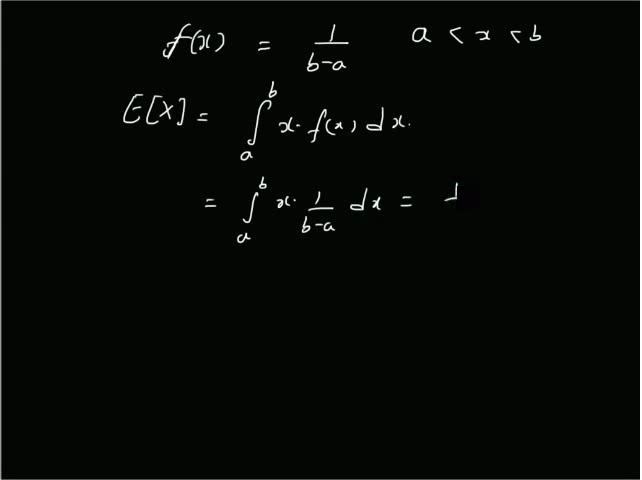 f(x) = 1/(b-a) a < x < b
E[X] = ∫_a^b x · f(x) dx.
= ∫_a^b x · 1/(b-a) dx =